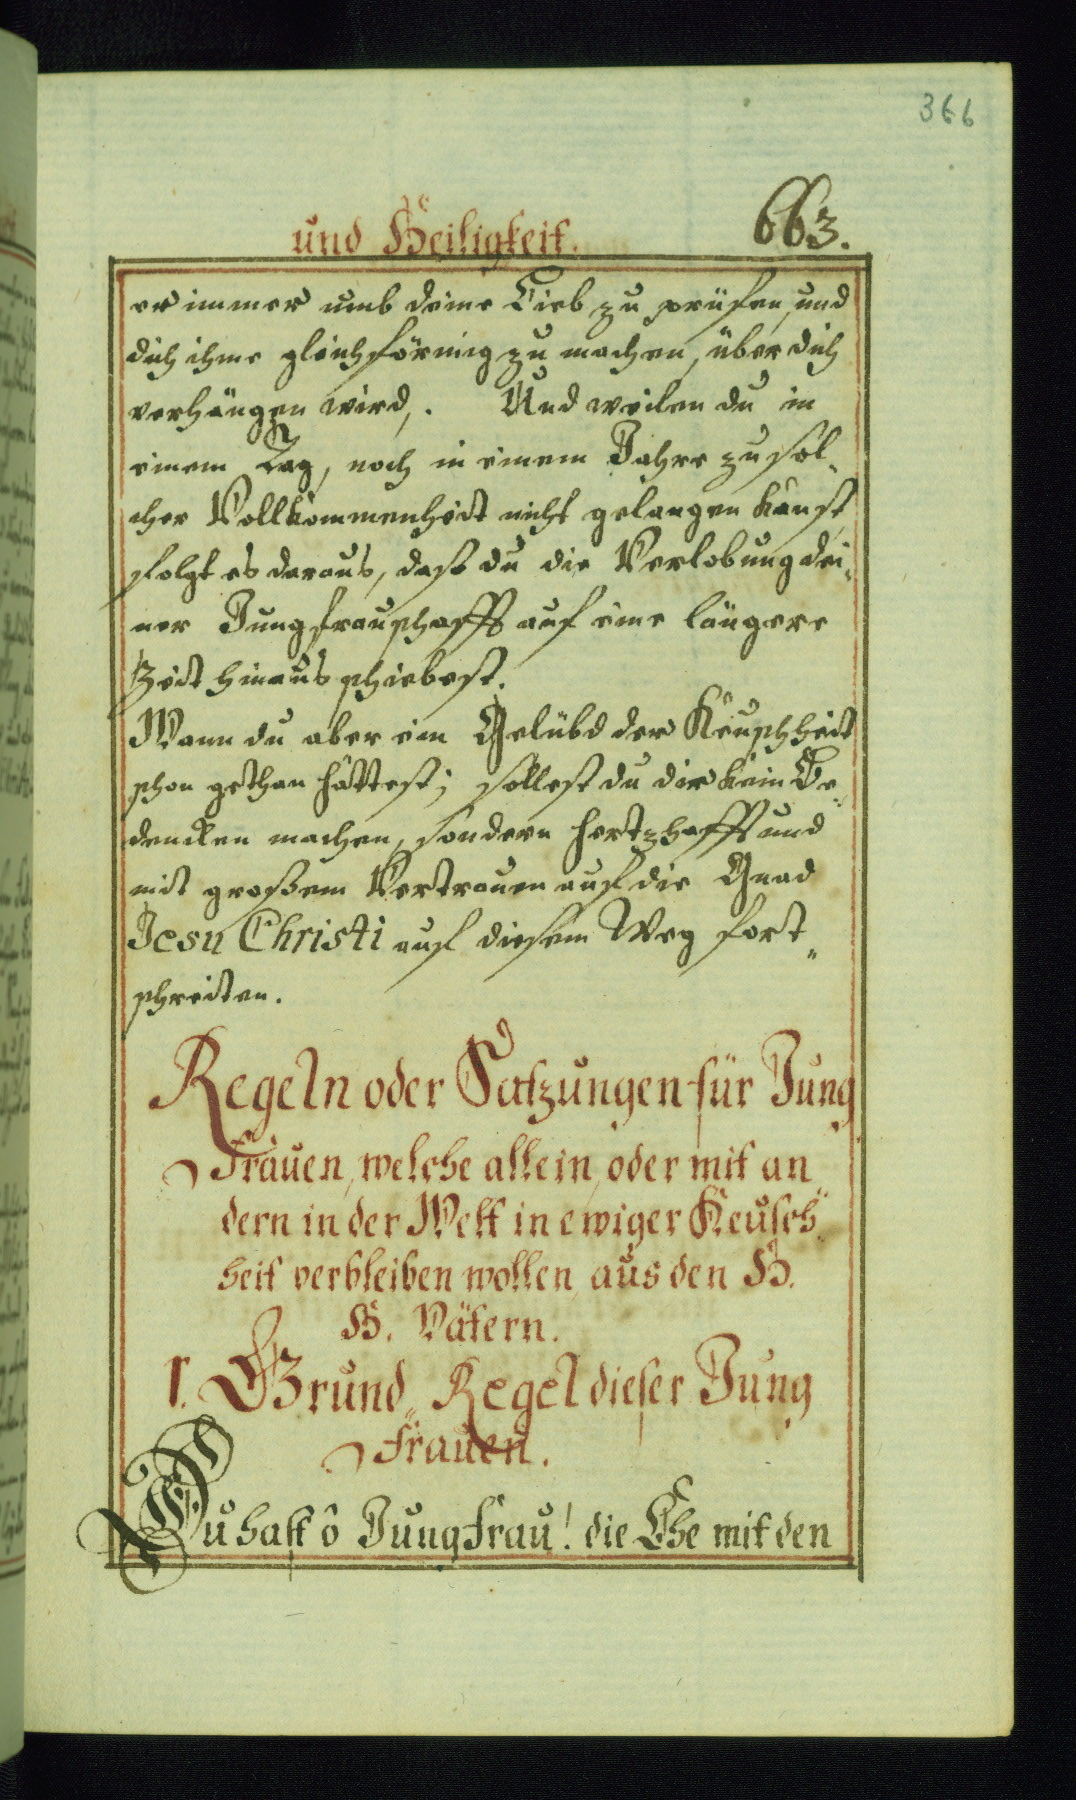 366
und Heiligkeit. 663.
er immer umb deine Lieb zu prüfen, und
dich ihme gleichförmig zu machen, über dich
verhängen wird,. Und weilen du in
einem Tag, noch in einem Jahre zu sol„
cher Vollkommenheit nicht gelangen kanst,
folgt es daraus, dass du die Verlobung dei„
ner Jungfrauschafft auf eine längere
Zeit hinaus schiebest.
Wann du aber ein Gelübd der Keuschheit
schon gethan hättest; sollest du dir kein Be„
dencken machen, sondern hertzhafft und
mit grossem Vertrauen auf die Gnad
Jesu Christi auf diesem Weg fort„
schreiten.
Regeln oder Satzungen für Jung„
frauen, welche allein, oder mit an„
dern in der Welt in ewiger Keusch„
heit verbleiben wollen, aus den H.
H. Vätern.
1. Grund„Regel dieser Jung„
frauen.
Du hast ô Jungfrau! die Ehe mit den